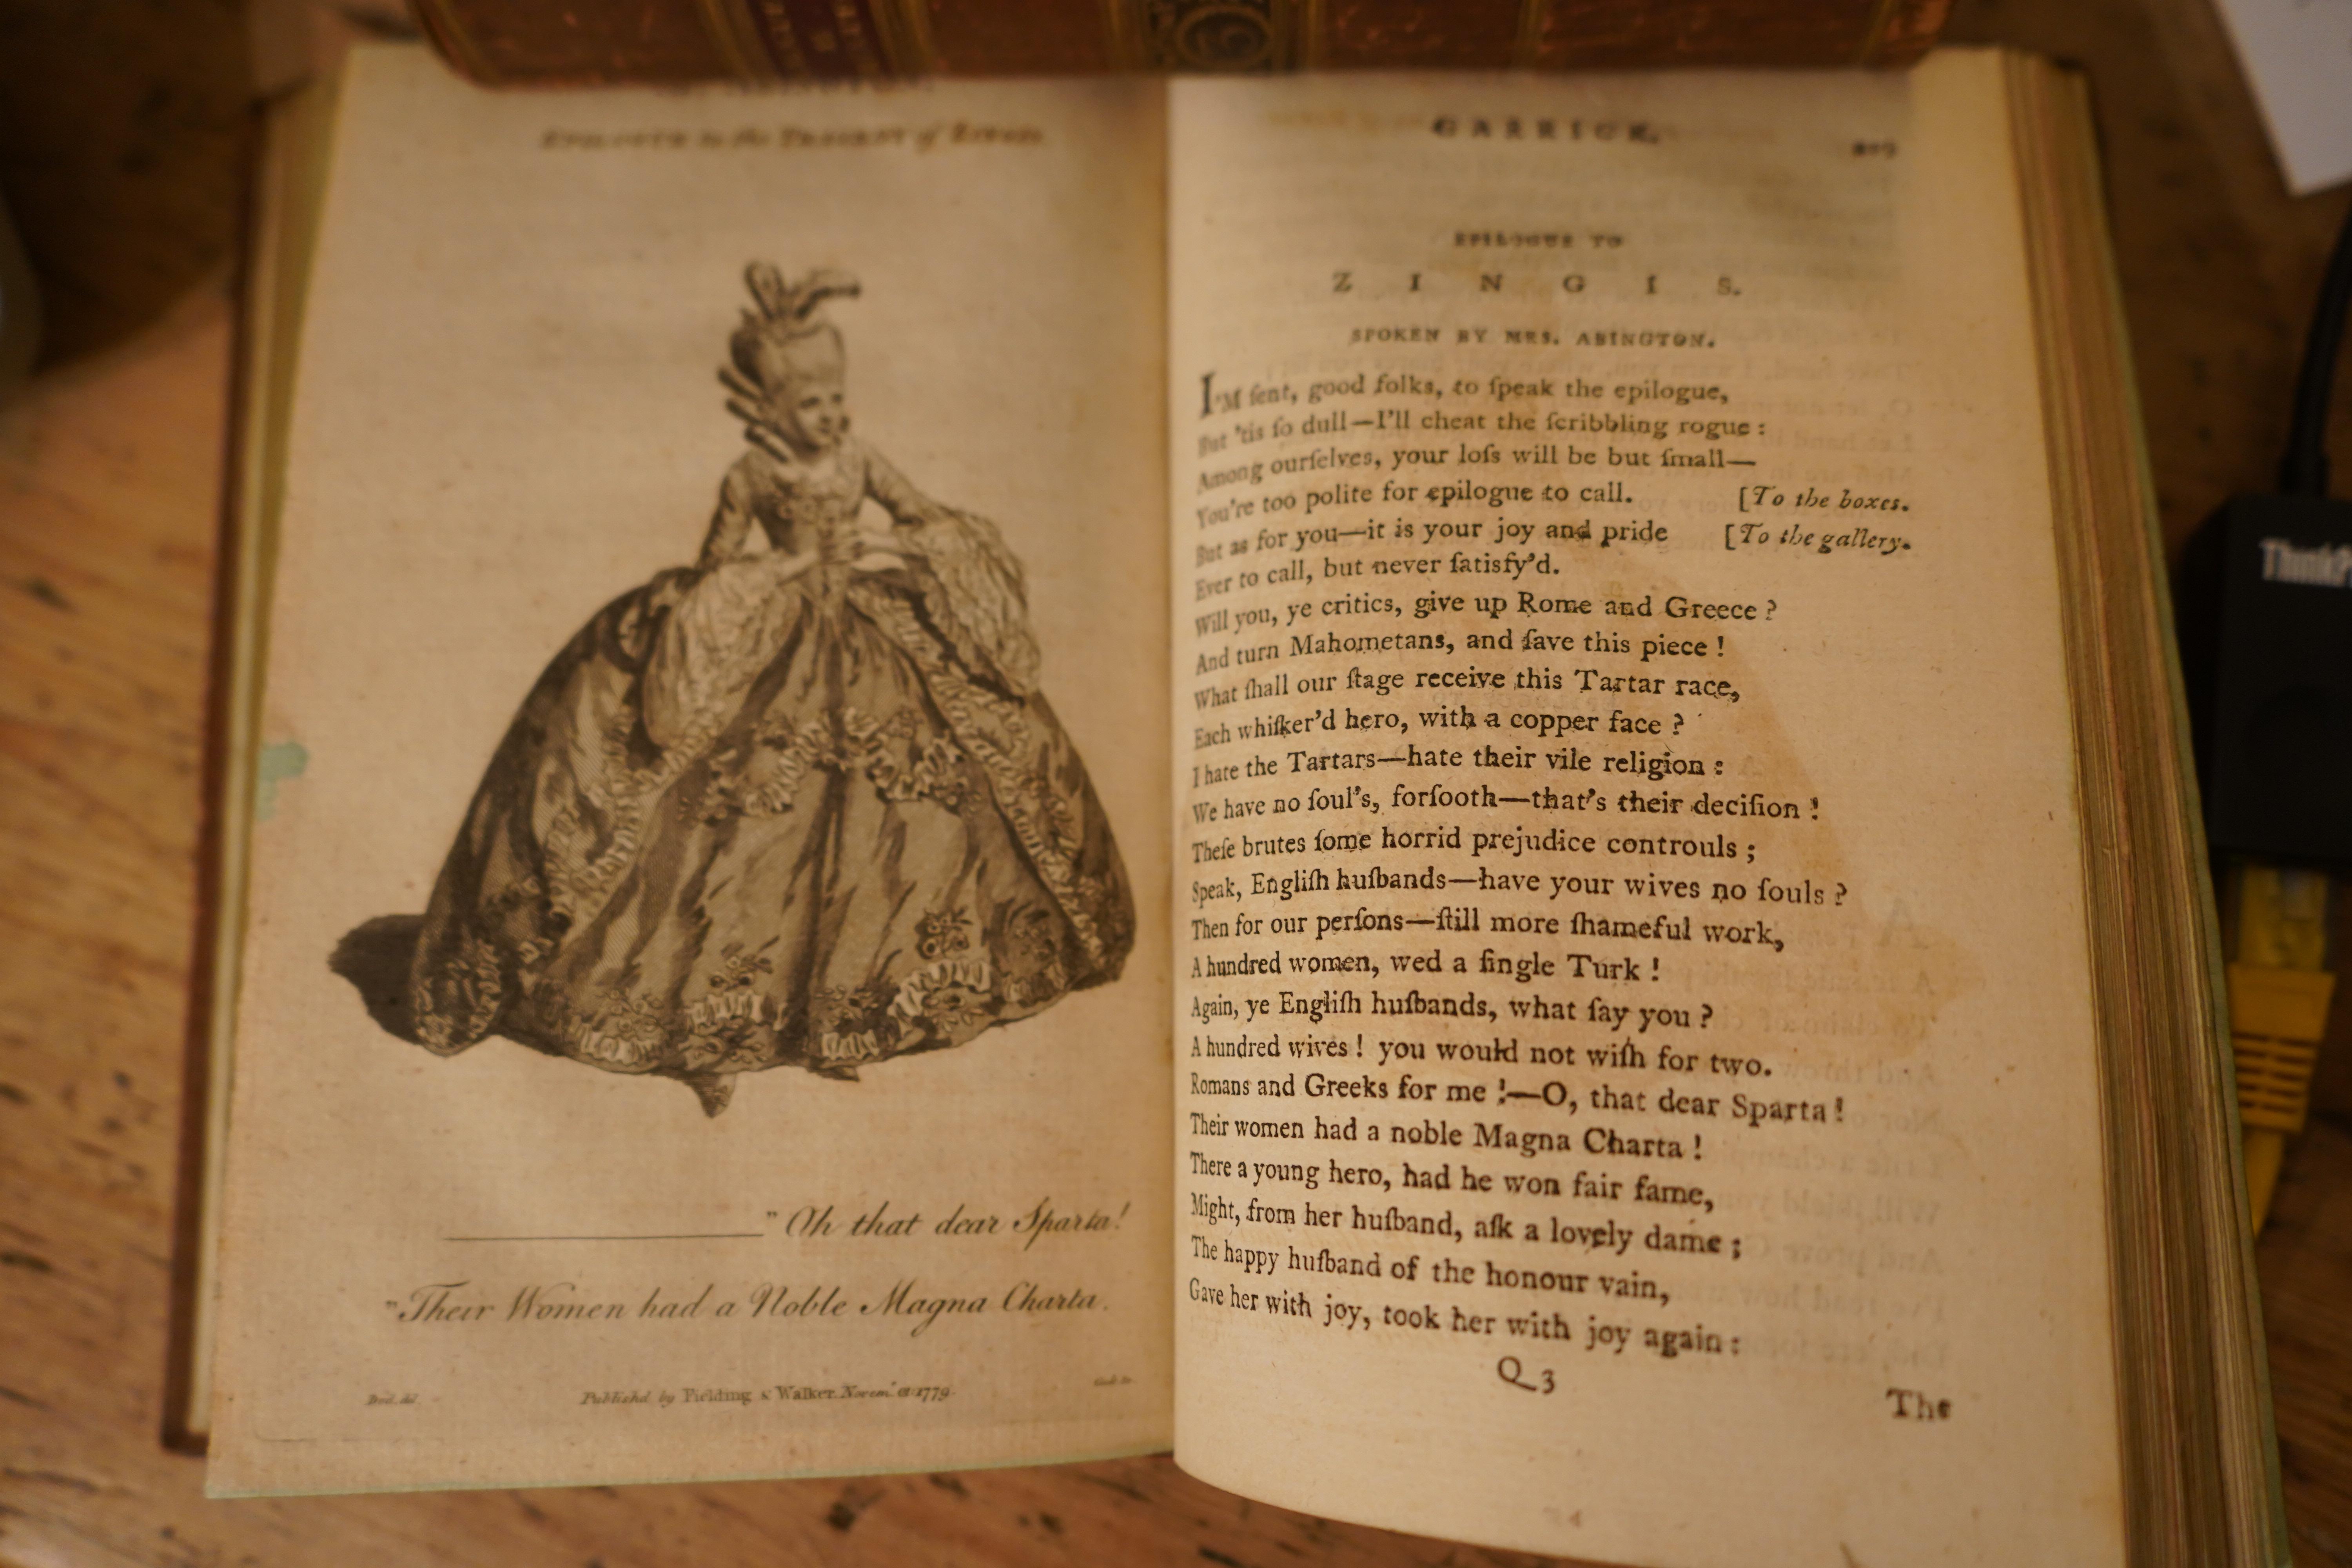 EPILOGUE to the TRAGEDY of ZINGIS.
" Oh that dear Sparta!
"Their Women had a Noble Magna Charta.
Publish'd by Fielding & Walker Novem.r 1779.
GARRICK.
EPILOGUE TO
ZINGIS.
SPOKEN BY MRS. ABINGTON.
I'M ſent, good folks, to ſpeak the epilogue,
But 'tis ſo dull—I'll cheat the ſcribbling rogue :
Among ourſelves, your loſs will be but ſmall—
You're too polite for epilogue to call. [To the boxes.
But as for you—it is your joy and pride [To the gallery.
Ever to call, but never ſatisfy'd.
Will you, ye critics, give up Rome and Greece ?
And turn Mahometans, and ſave this piece !
What ſhall our ſtage receive this Tartar race,
Each whiſker'd hero, with a copper face ?
I hate the Tartars—hate their vile religion :
We have no ſoul's, forſooth—that's their deciſion !
Theſe brutes ſome horrid prejudice controuls ;
Speak, Engliſh huſbands—have your wives no ſouls ?
Then for our perſons—ſtill more ſhameful work,
A hundred women, wed a ſingle Turk !
Again, ye Engliſh huſbands, what ſay you ?
A hundred wives ! you would not wiſh for two.
Romans and Greeks for me !—O, that dear Sparta !
Their women had a noble Magna Charta !
There a young hero, had he won fair fame,
Might, from her huſband, aſk a lovely dame ;
The happy huſband of the honour vain,
Gave her with joy, took her with joy again :
Q 3
The